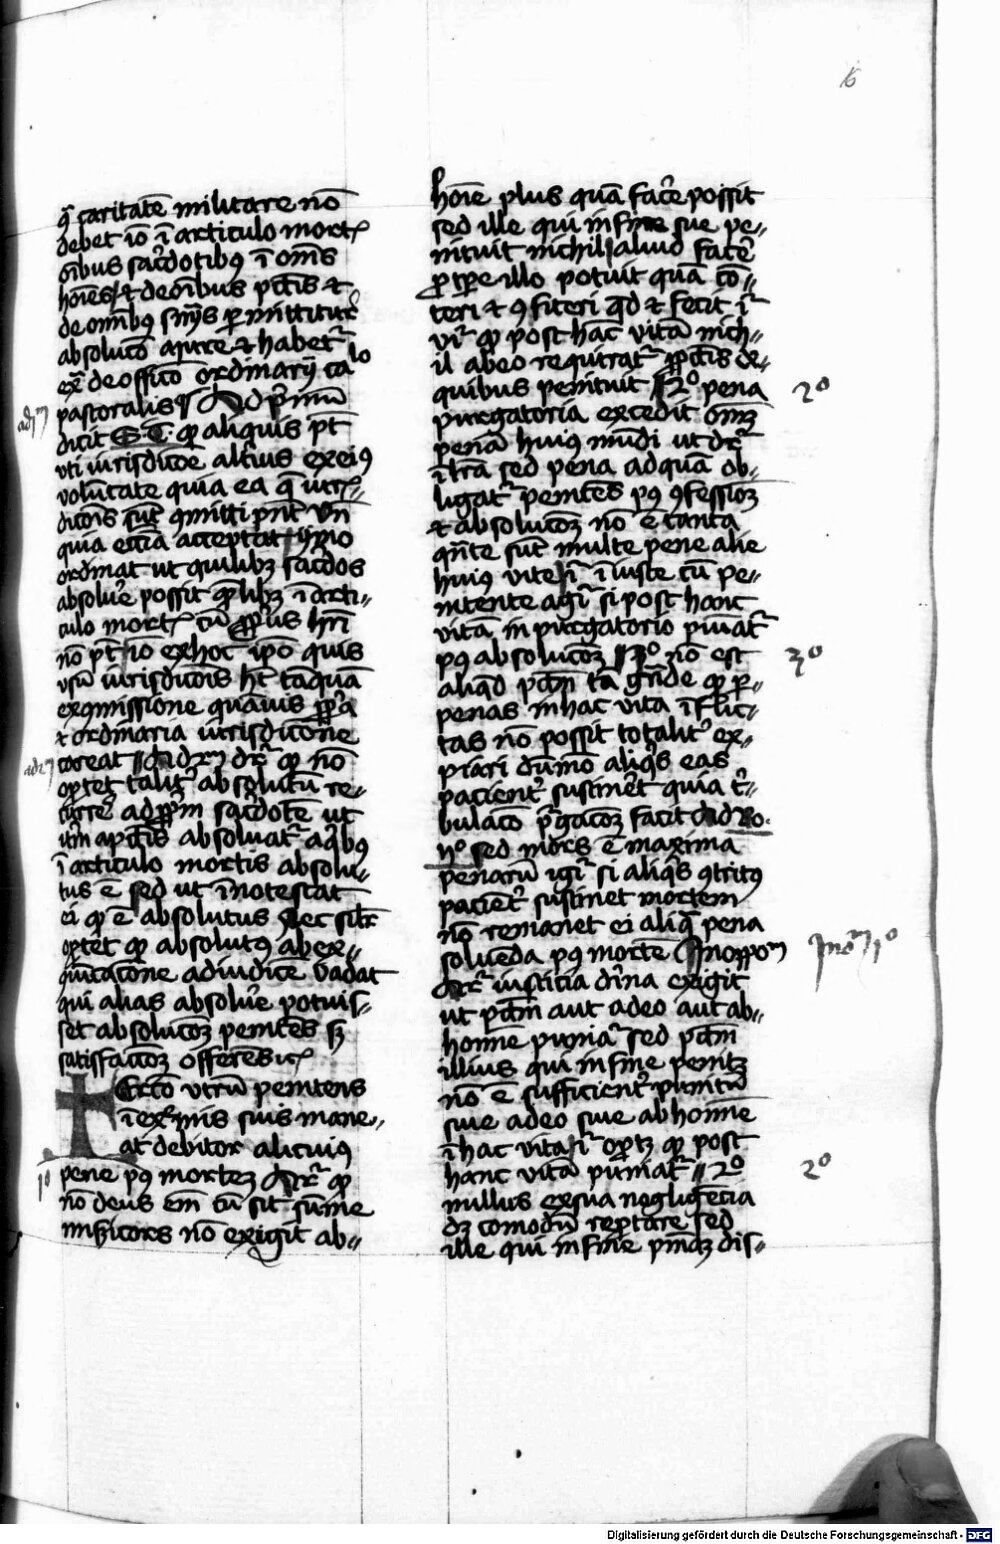 16
q̄ caritatē militare nō
debet iō ī articulo mort
oībus sac̄dotibꝰ ī om̄s
hoīes et de oībus pctīs et
de omībꝰ permittitur
absoluco᷒ a iure et habet᷒
ex̄ de officō ordinarij ca lo
pastoralis Ad prīmū
dicit qꝫ aliquis pt̄
vti iurisdicōe alterius ex eiꝰ
volūtate quia ea q̄ iur
dicōis sūt ꝯmitti pn̄t
quia eccīa acceptat
ordīnat ut quilibꝫ sacdos
absoluē possit qm̄libꝫ ī arti
culo mort cū
nō pt̄ iō ex hoc ipō quis
vsū iurisdicōis ht̄ tāquā
ex ꝯmissione quāuis ꝓpa
et ordinaria iurisdicōne
careat Ad 2m dr̄ qꝫ nō
oportet talit absolutū re
currē ad sacdotē ut
itm̄ a pctīs absoluat᷒ a qbꝰ
ī articulo mortis absolu
tus ē sed ut īnotescat
ei qꝫ ē absolutus Nec silr̄
oportet qꝫ absolutꝰ ab ex
ꝯicacōne ad iudicē vadat
qui alias absoluē potuis
set absolucōꝫ petēs sꝫ
satisfaccōꝫ offeres
Tercō vtrū penitens
ī exᵉmis suis mane
at debitor alicuiꝰ
pene pꝰ mortē dr̄ qꝫ
nō deus em̄ cū sit sūme
misīcors nō exigit ab
hoīe plus quā facē possit
sed ille qui in fine sue pe
nituit nichil aliud facē
ꝓ tp̄e illo potuit quā cō
teri et ꝯfiteri qd et fecit ī
vr̄ qꝫ post hāc vitā nich
il ab eo requirat᷒ ꝓ pctīs de
quibus penituit 2º pena
purgatoria excedit omēꝫ
penā huiꝰ mūdi ut dr̄
īfra sed pena ad quā ob
ligat᷒ penitēs pꝰ ꝯfessioēꝫ
et absolucōꝫ nō ē tanta
qn̄te sūt multe pene alie
huiꝰ vite ī iuste cū pe
nitente agī si post hanc
vitā in purgatorio puniat᷒
pꝰ absolucōꝫ 3º nō est
aliqd pctm̄ tā grāde qꝫ per
penas in hac vita īflic
tas nō possit totalit ex
piari dūmō aliqs eas
pacient sustinet quia tri
bulacō purgacōꝫ facit ad Ro.
vº sed mors ē maxima
penarū igī si aliqs ꝯtritꝰ
pacient sustinet mortem
nō remanet ei aliq pena
soluēda pꝰ mortē In oppom
dr̄ iusticia diīna exigit
ut pctm̄ aut a deo aut ab
homīne puniat᷒ sed pctm̄
illius qui in fine penitꝫ
nō ē sufficient punitū
siue a deo siue ab homīne
ī hac vita ī oportꝫ qꝫ post
hanc vitā puniat᷒ 2º
nullus ex sua negligēcia
dꝫ comodū reportare sed
ille qui in fine dis
ad 1m
ad 2m
1º
2º
3º
In o᷒m 1º
2º
Digitalisierung gefördert durch die Deutsche Forschungsgemeinschaft - DFG